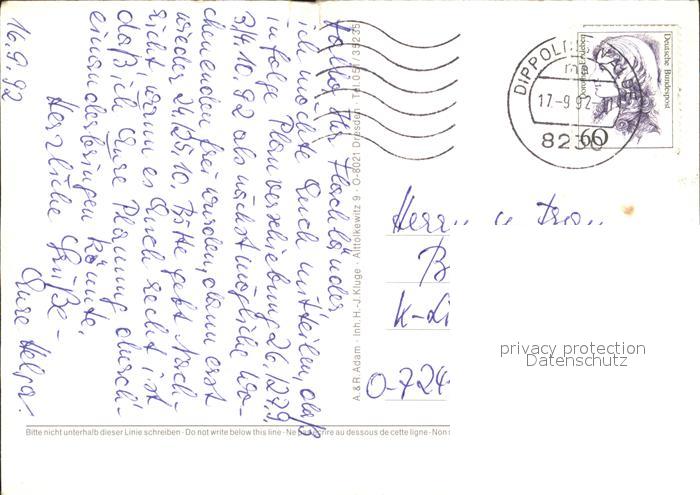 16.9.92
Hallo Ihr Flachländer
ich möchte Euch mitteilen, daß
infolge Planverschiebung 26./27.9.
3./4.10.92 als nächstmögliche Wo-
chenenden frei wurden, dann erst
wieder 24./25.10. Bitte gebt Nach-
richt wann es Euch recht ist
daß ich Eure Planung durch-
einanderbringen könnte.
Herzliche Grüße -
Eure Helga.
A.&R. Adam · Inh. H.-J. Kluge · Alttolkewitz 9 · O-8021 Dresden · Tel. 051/35235
Deutsche Bundespost
Dorothea Erxleben
60
DIPPOLDISWALDE
17.-9.92
8230
Herrn u. Frau
B
K-Li
O-724
privacy protection
Datenschutz
Bitte nicht unterhalb dieser Linie schreiben · Do not write below this line · Ne pas écrire au dessous de cette ligne · Non s